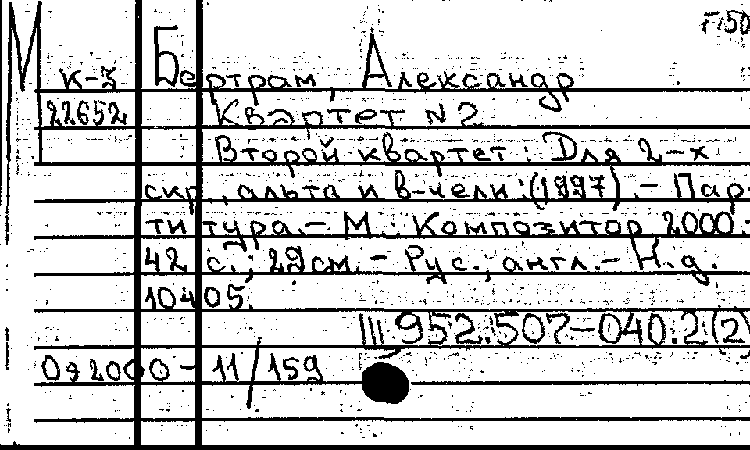 М Г 50
к-3 Бертрам, Александр
22652 Квартет N 2
Второй квартет: Для 2-х
скр., альта и в-чели: (1997). - Пар-
титура. - М.: Композитор 2000. -
42 с.; 29 см. - Рус., англ. - Н.д.
10405.
III 952.507-040.2(2)
Оя2000 - 11/159